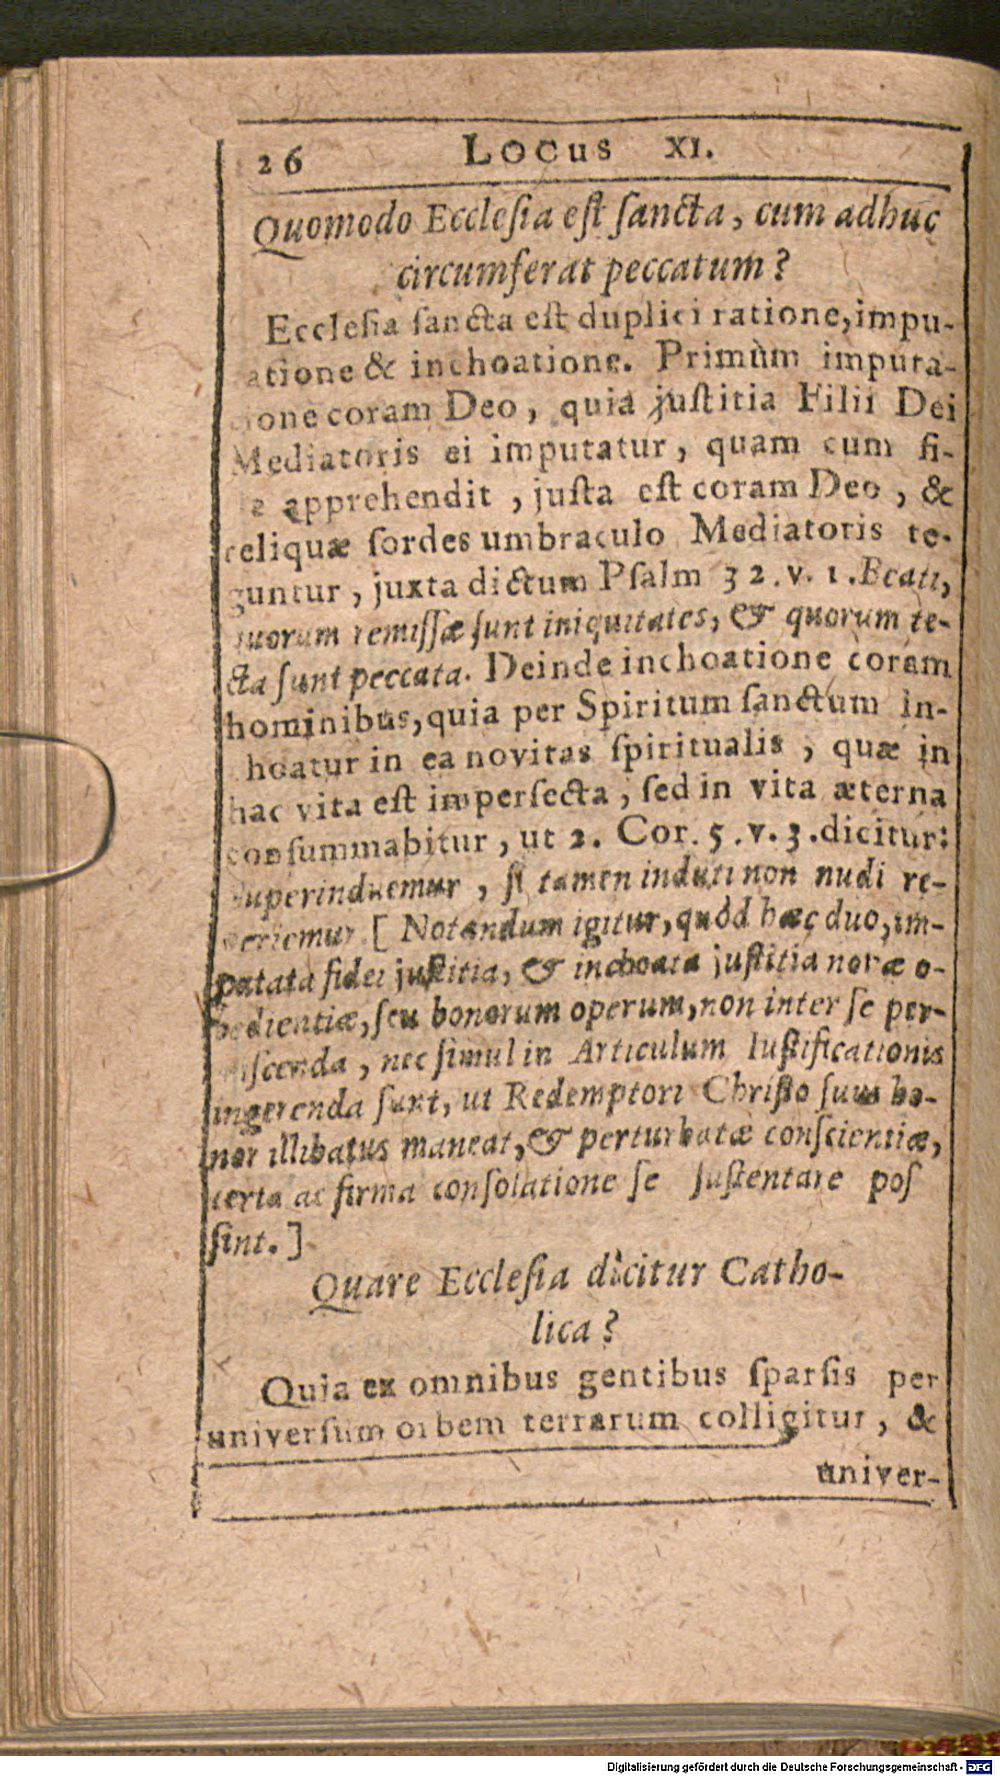 26 Locus XI.
Quomodo Ecclesia est sancta, cum adhuc
circumferat peccatum?
Ecclesia sancta est duplici ratione, impu-
atione & inchoatione. Primùm imputa-
ione coram Deo, quia justitia Filii Dei
Mediatoris ei imputatur, quam cum fi-
e apprehendit, justa est coram Deo, &
reliquæ sordes umbraculo Mediatoris te-
guntur, juxta dictum Psalm 32. v. 1. Beati,
quorum remissæ sunt iniquitates, & quorum te-
cta sunt peccata. Deinde inchoatione coram
hominibus, quia per Spiritum sanctum in-
hoatur in ea novitas spiritualis, quæ in
hac vita est imperfecta, sed in vita æterna
consummabitur, ut 2. Cor. 5. v. 3. dicitur:
superinduemur, si tamen induti non nudi re-
periemur [Notandum igitur, quòd hæc duo, im-
putata fidei justitia, & inchoata justitia novæ o-
bedientiæ, seu bonorum operum, non inter se per-
miscenda, nec simul in Articulum Iustificationis
ingerenda sunt, ut Redemptori Christo suus ho-
nor illibatus maneat, & perturbatæ conscientiæ,
certa ac firma consolatione se sustentare pos
sint.]
Quare Ecclesia dicitur Catho-
lica?
Quia ex omnibus gentibus sparsis per
universum orbem terrarum colligitur, &
univer-
Digitalisierung gefördert durch die Deutsche Forschungsgemeinschaft - DFG